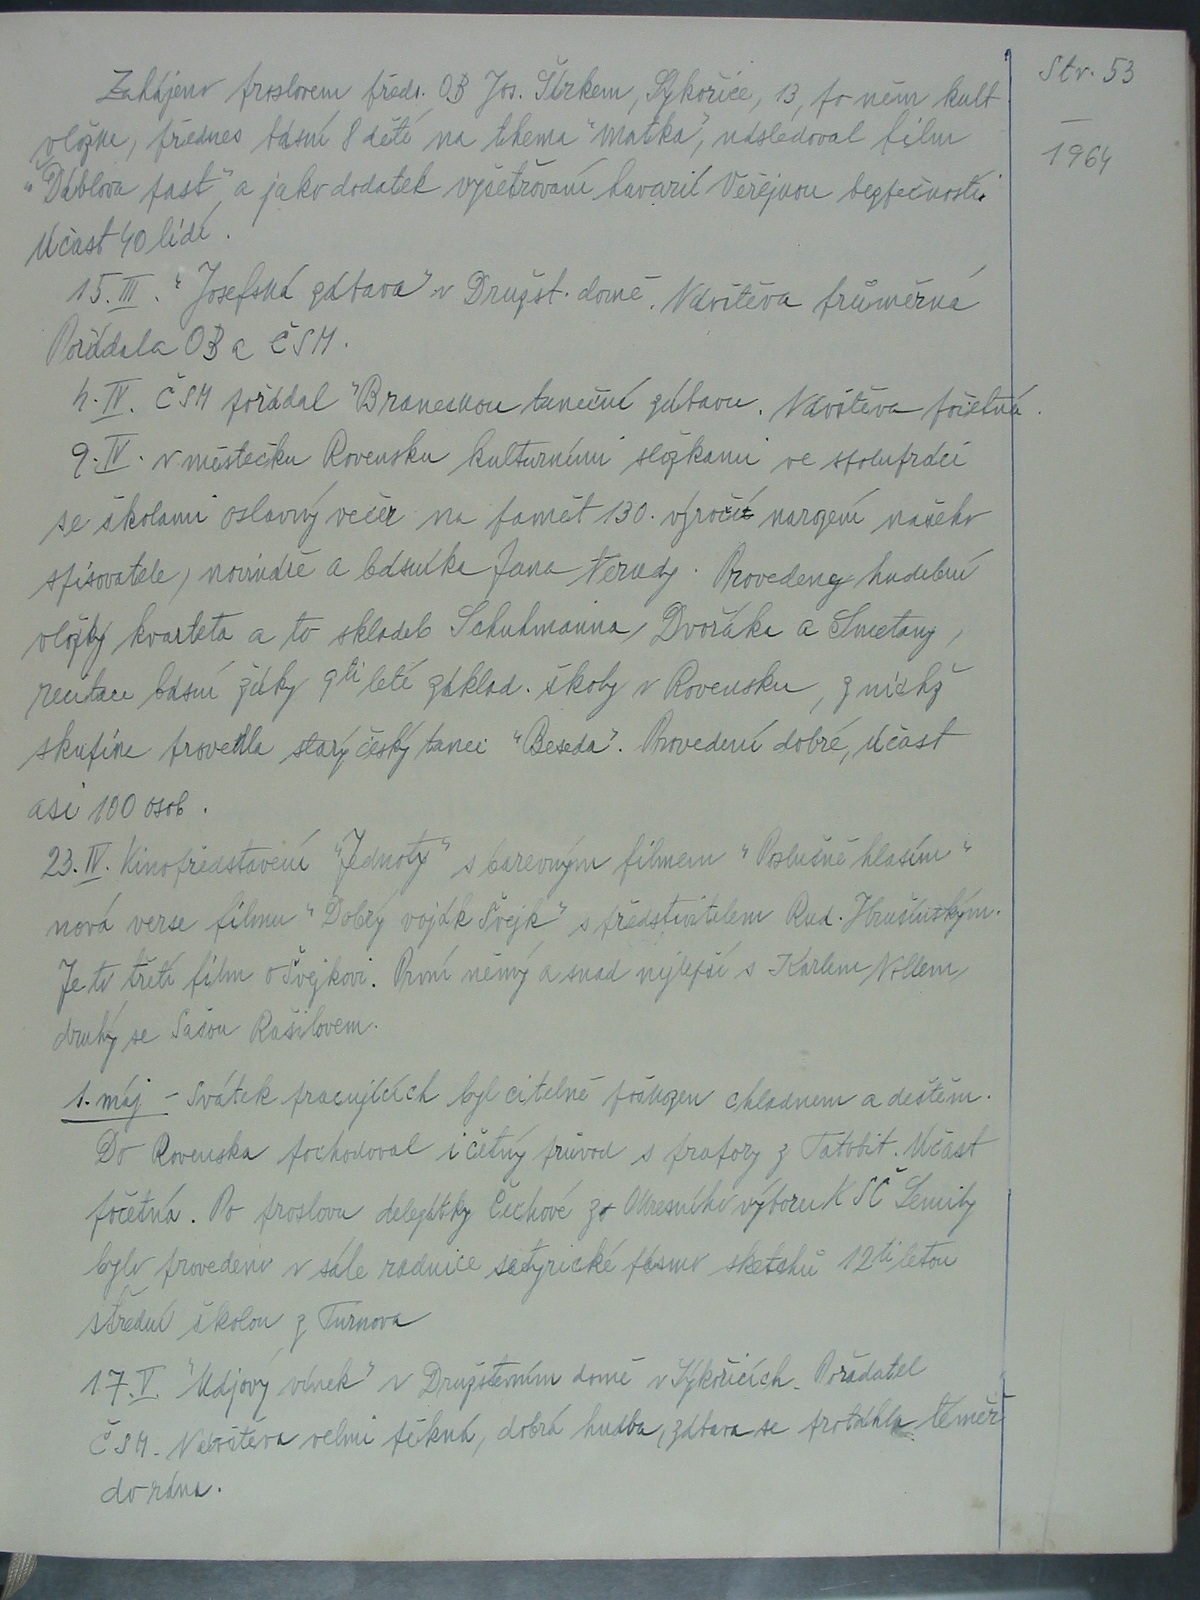 Str. 53
—
1964
Zahájeno proslovem předs. OB Jos. Šírkem, Sýkořice, 13, po něm kult
vložka, přednes básní 8 dětí na thema "Matka", následoval film
"Ďáblova past" a jako dodatek vyšetřování havarií Veřejnou bezpečností.
Účast 40 lidí.
15. III. "Josefská zábava" v Družst. domě. Návštěva průměrná
Pořádala OB a ČSM.
4. IV. ČSM pořádal "Braneckou taneční zábavu. Návštěva početná.
9. IV. v městečku Rovensku kulturními složkami ve spolupráci
se školami oslavný večer na paměť 130. výročí narození našeho
spisovatele, novináře a básníka Jana Nerudy. Provedeny hudební
vložky kvarteta a to skladeb Schuhmanna, Dvořáka a Smetany,
recitace básní žáky 9ti leté základ. školy v Rovensku, z nichž
skupina provedla starý český tanec "Beseda". Provedení dobré, účast
asi 100 osob.
23. IV. Kinopředstavení "Jednoty" s barevným filmem "Poslušně hlasím"
nová verse filmu "Dobrý voják Švejk" s představitelem Rud. Hrušínským.
Je to třetí film o Švejkovi. První němý a snad nejlepší s Karlem Nollem,
druhý se Sašou Rašilovem.
1. máj - Svátek pracujících byl citelně poškozen chladnem a deštěm.
Do Rovenska pochodoval i četný průvod s prapory z Tatobit. Účast
početná. Po proslovu delegátky Čechové za Okresního výboru KSČ Semily
bylo provedeno v sále radnice satyrické pásmo sketchů 12ti letou
střední školou z Turnova
17. V. "Májový vínek" v Družstevním domě v Sýkořicích. Pořadatel
ČSM. Návštěva velmi pěkná, dobrá hudba, zábava se protáhla téměř
do rána.